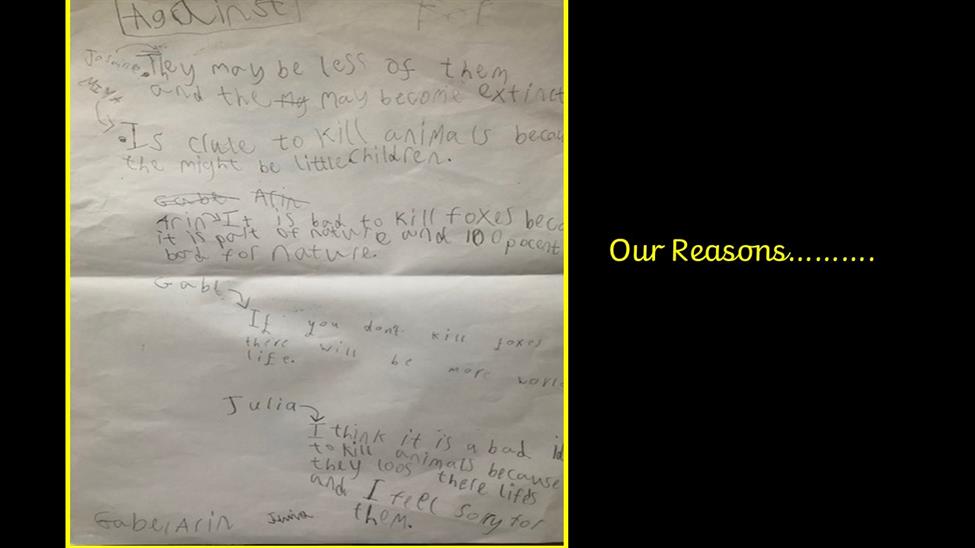 Against
Jasmine They may be less of them
and the may become extinct
Is clute to kill animals becau
the might be little children.
Gabe Arin
Arin It is bad to kill foxes beca
it is part of nature and 100 pacent
bad for nature.
Gabe
If you dont kill foxes
there will be more world
life.
Julia
I think it is a bad id
to kill animals because
they loos there lifes
and I feel sory for
them.
Gabe, Arin
Our Reasons..........